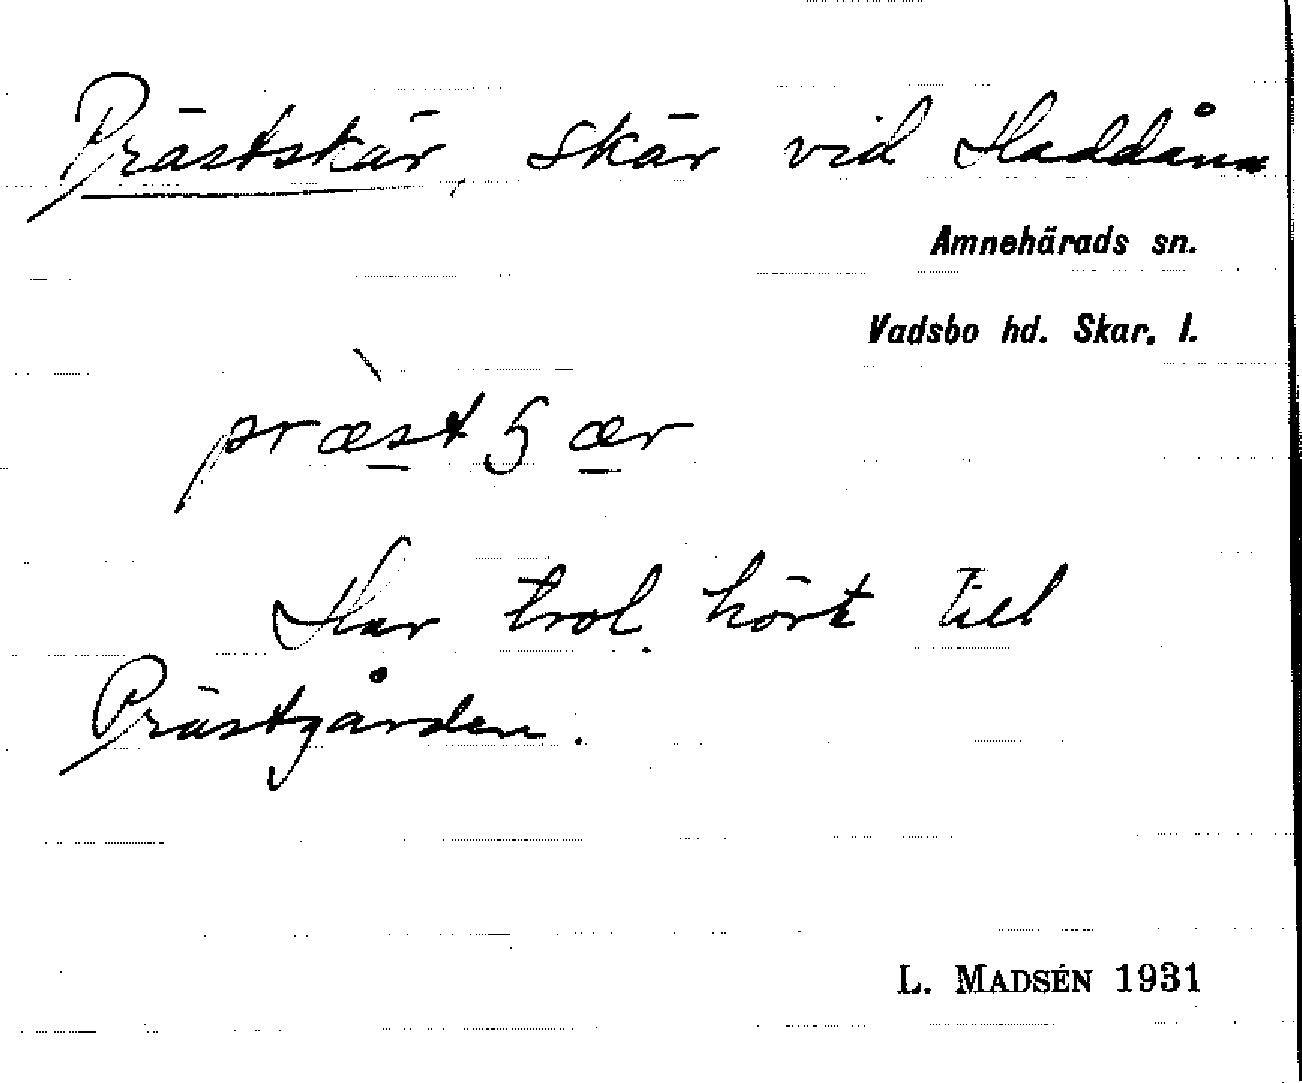 Prästskär, skär vid Haddåns
Amnehärads sn.
Vadsbo hd. Skar. l.
præ̀st ʂ ær
Har trol. hört till
Prästgården.
L. MADSÉN 1931